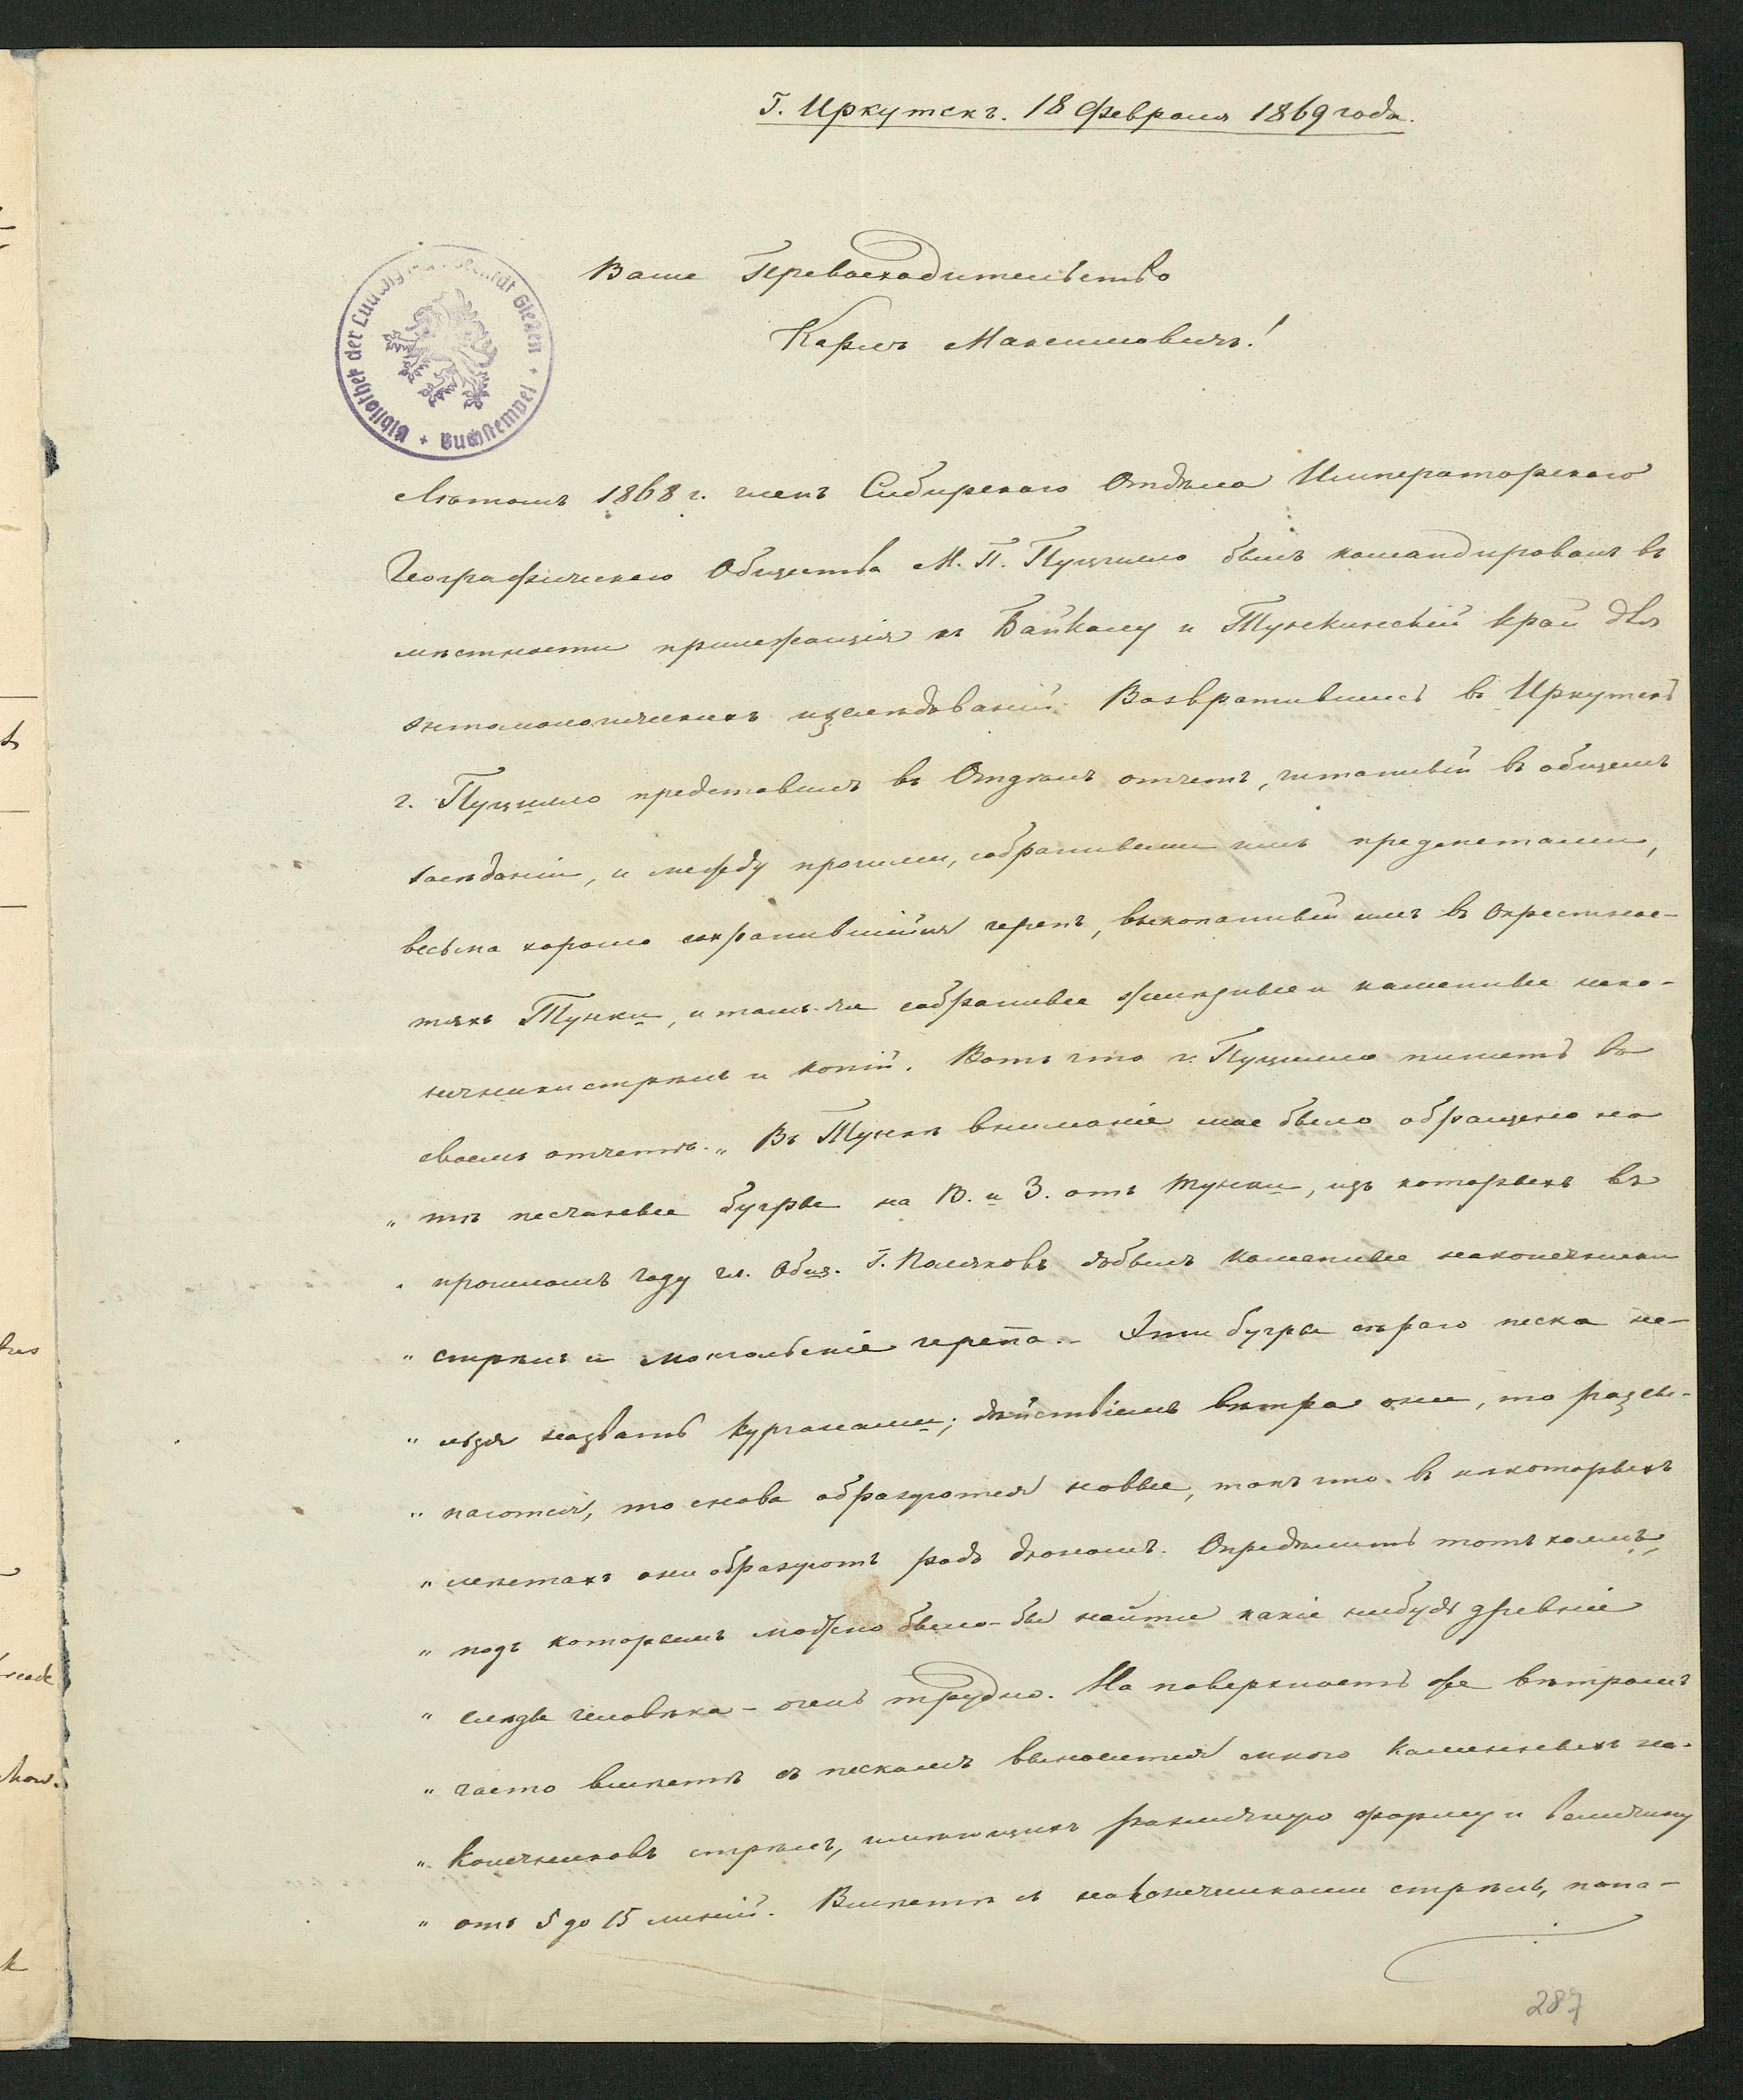 Г. Иркутскъ. 18 Февраля 1869 года.
Ваше Превосходительство
Карлъ Максимовичъ!
Bibliothek der Ludwigs Gießen + Buchstempel +
Лѣтомъ 1868 г. членъ Сибирскаго Отдѣла Императорскаго
Географическаго Общества М. П. Пуцилло былъ командированъ въ
мѣстности прилежащія къ Байкалу и Тункинскій край для
энтомологическихъ изслѣдованій. Возвратившись въ Иркутскъ
г. Пуцилло представилъ въ Отдѣлъ отчетъ, читанный въ общемъ
засѣданіи, и между прочими, собранными имъ предметами,
весьма хорошо сохранившійся черепъ, выкопанный имъ въ окрестнос-
тяхъ Тунки, и тамъ-же собранные и каменные нако-
нечники стрѣлъ и копій. Вотъ что г. Пуцилло пишетъ въ
своемъ отчетѣ. „Въ Тункѣ вниманіе мое было обращено на
„ тѣ песчаные бугры на В. и З. отъ Тунки, изъ которыхъ въ
„ прошломъ году чл. Общ. Г. Поляковъ добылъ каменные наконечники
„ стрѣлъ и монгольскіе черепа. – Эти бугры сѣраго песка не-
„ льзя назвать курганами; дѣйствіемъ вѣтра они, то разсы-
„ паются, то снова образуются новые, такъ что въ нѣкоторыхъ
„ мѣстахъ они образуютъ родъ дюномъ. Опредѣлить тотъ холмъ,
„ подъ которымъ можно было-бы найти какіе нибудь древніе
„ слѣды человѣка – очень трудно. На поверхность же вѣтромъ
„ часто вмѣстѣ съ пескомъ выносится много каменныхъ на-
„ конечниковъ стрѣлъ, имѣющихъ различную форму и величину
„ отъ 5 до 15 линій. Вмѣстѣ съ наконечниками стрѣлъ, попа-
287